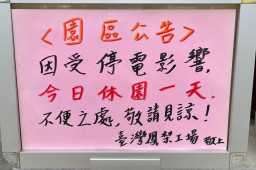 <園區公告>
因受停電影響,
今日休園一天.
不便之處,敬請見諒!
臺灣鳳梨工場 敬上